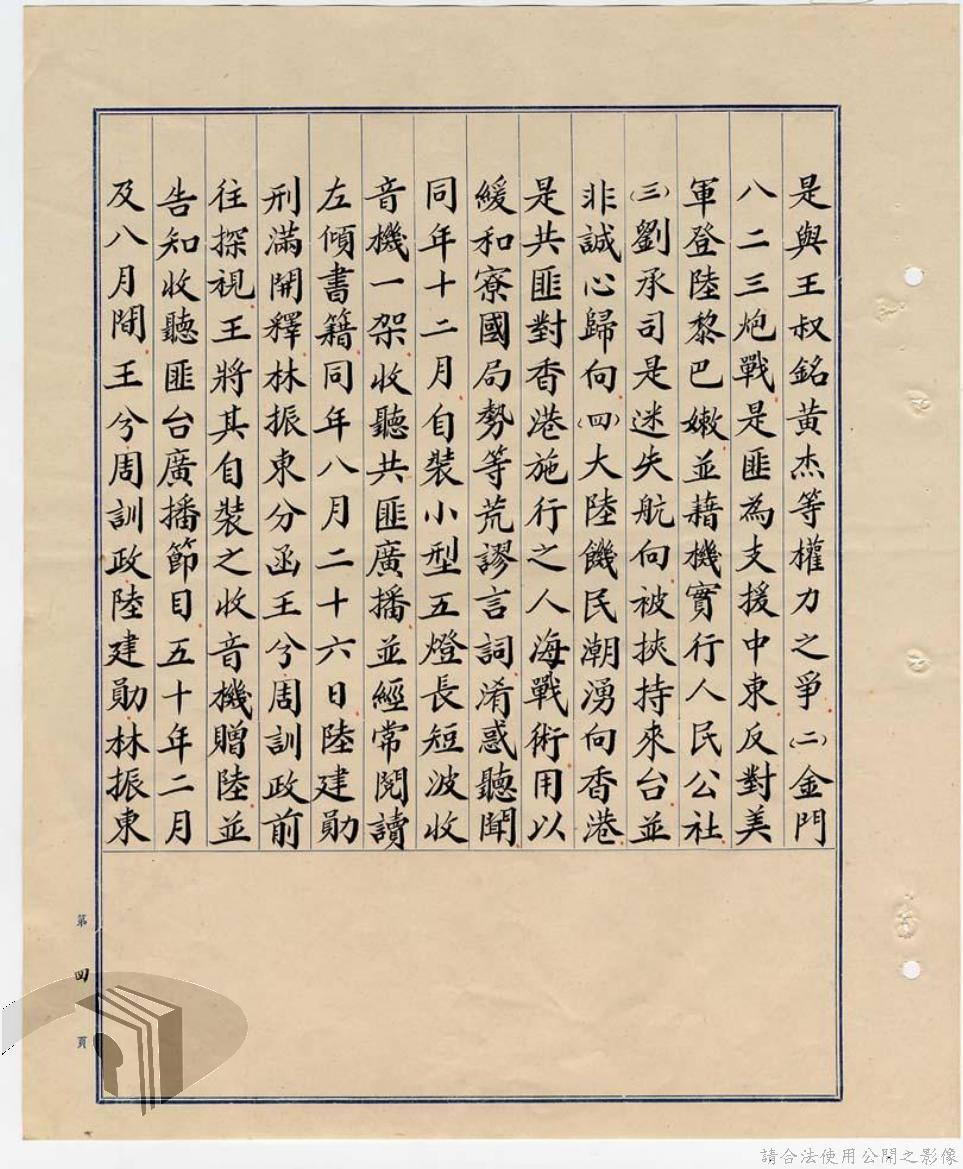 是與王叔銘黃杰等權力之爭㈡金門
八二三炮戰是匪為支援中東反對美
軍登陸黎巴嫩並藉機實行人民公社
㈢劉承司是迷失航向被挾持來台並
非誠心歸向㈣大陸饑民潮湧向香港
是共匪對香港施行之人海戰術用以
緩和寮國局勢等荒謬言詞淆惑聽聞
同年十二月自裝小型五燈長短波收
音機一架收聽共匪廣播並經常閱讀
左傾書籍同年八月二十六日陸建勛
刑滿開釋林振東分函王兮周訓政前
往探視王將其自裝之收音機贈陸並
告知收聽匪台廣播節目五十年二月
及八月間王兮周訓政陸建勛林振東
第四頁
請合法使用公開之影像